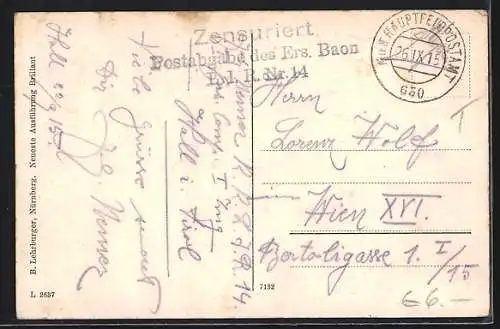 Zensuriert
Postabgabe des Ers. Baon
L. I. R. Nr. 14
K.u.K. HAUPTFELDPOSTAMT
26.IX.15
630
Hall 26/9 15
Viele Grüsse sendet
Dir
Werner
I. Zug
Hall i. Tirol
Herrn
Lorenz Wolf
Wien XVI.
Bertoligasse 1. I/15
€6.–
B. Lehrburger, Nürnberg. Neueste Ausführung Brillant
L. 2637
7132